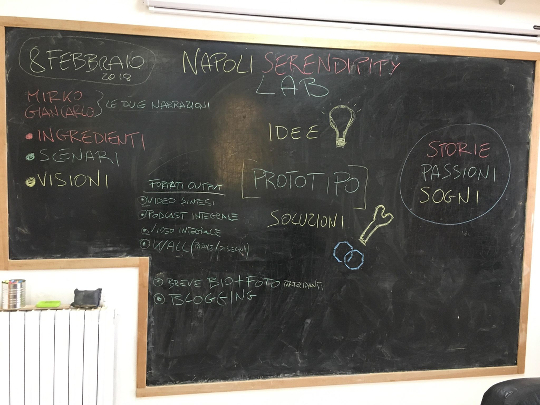 8 FEBBRAIO
2018
NAPOLI SERENDIPITY
LAB
MIRKO
GIANCARLO
LE DUE NARRAZIONI
INGREDIENTI
SCENARI
VISIONI
IDEE
PROTOTIPO
SOLUZIONI
STORIE
PASSIONI
SOGNI
FORMATI OUTPUT
VIDEO SINTESI
PODCAST INTEGRALE
VIDEO INTEGRALE
WALL
BREVE BIO + FOTO
BLOGGING